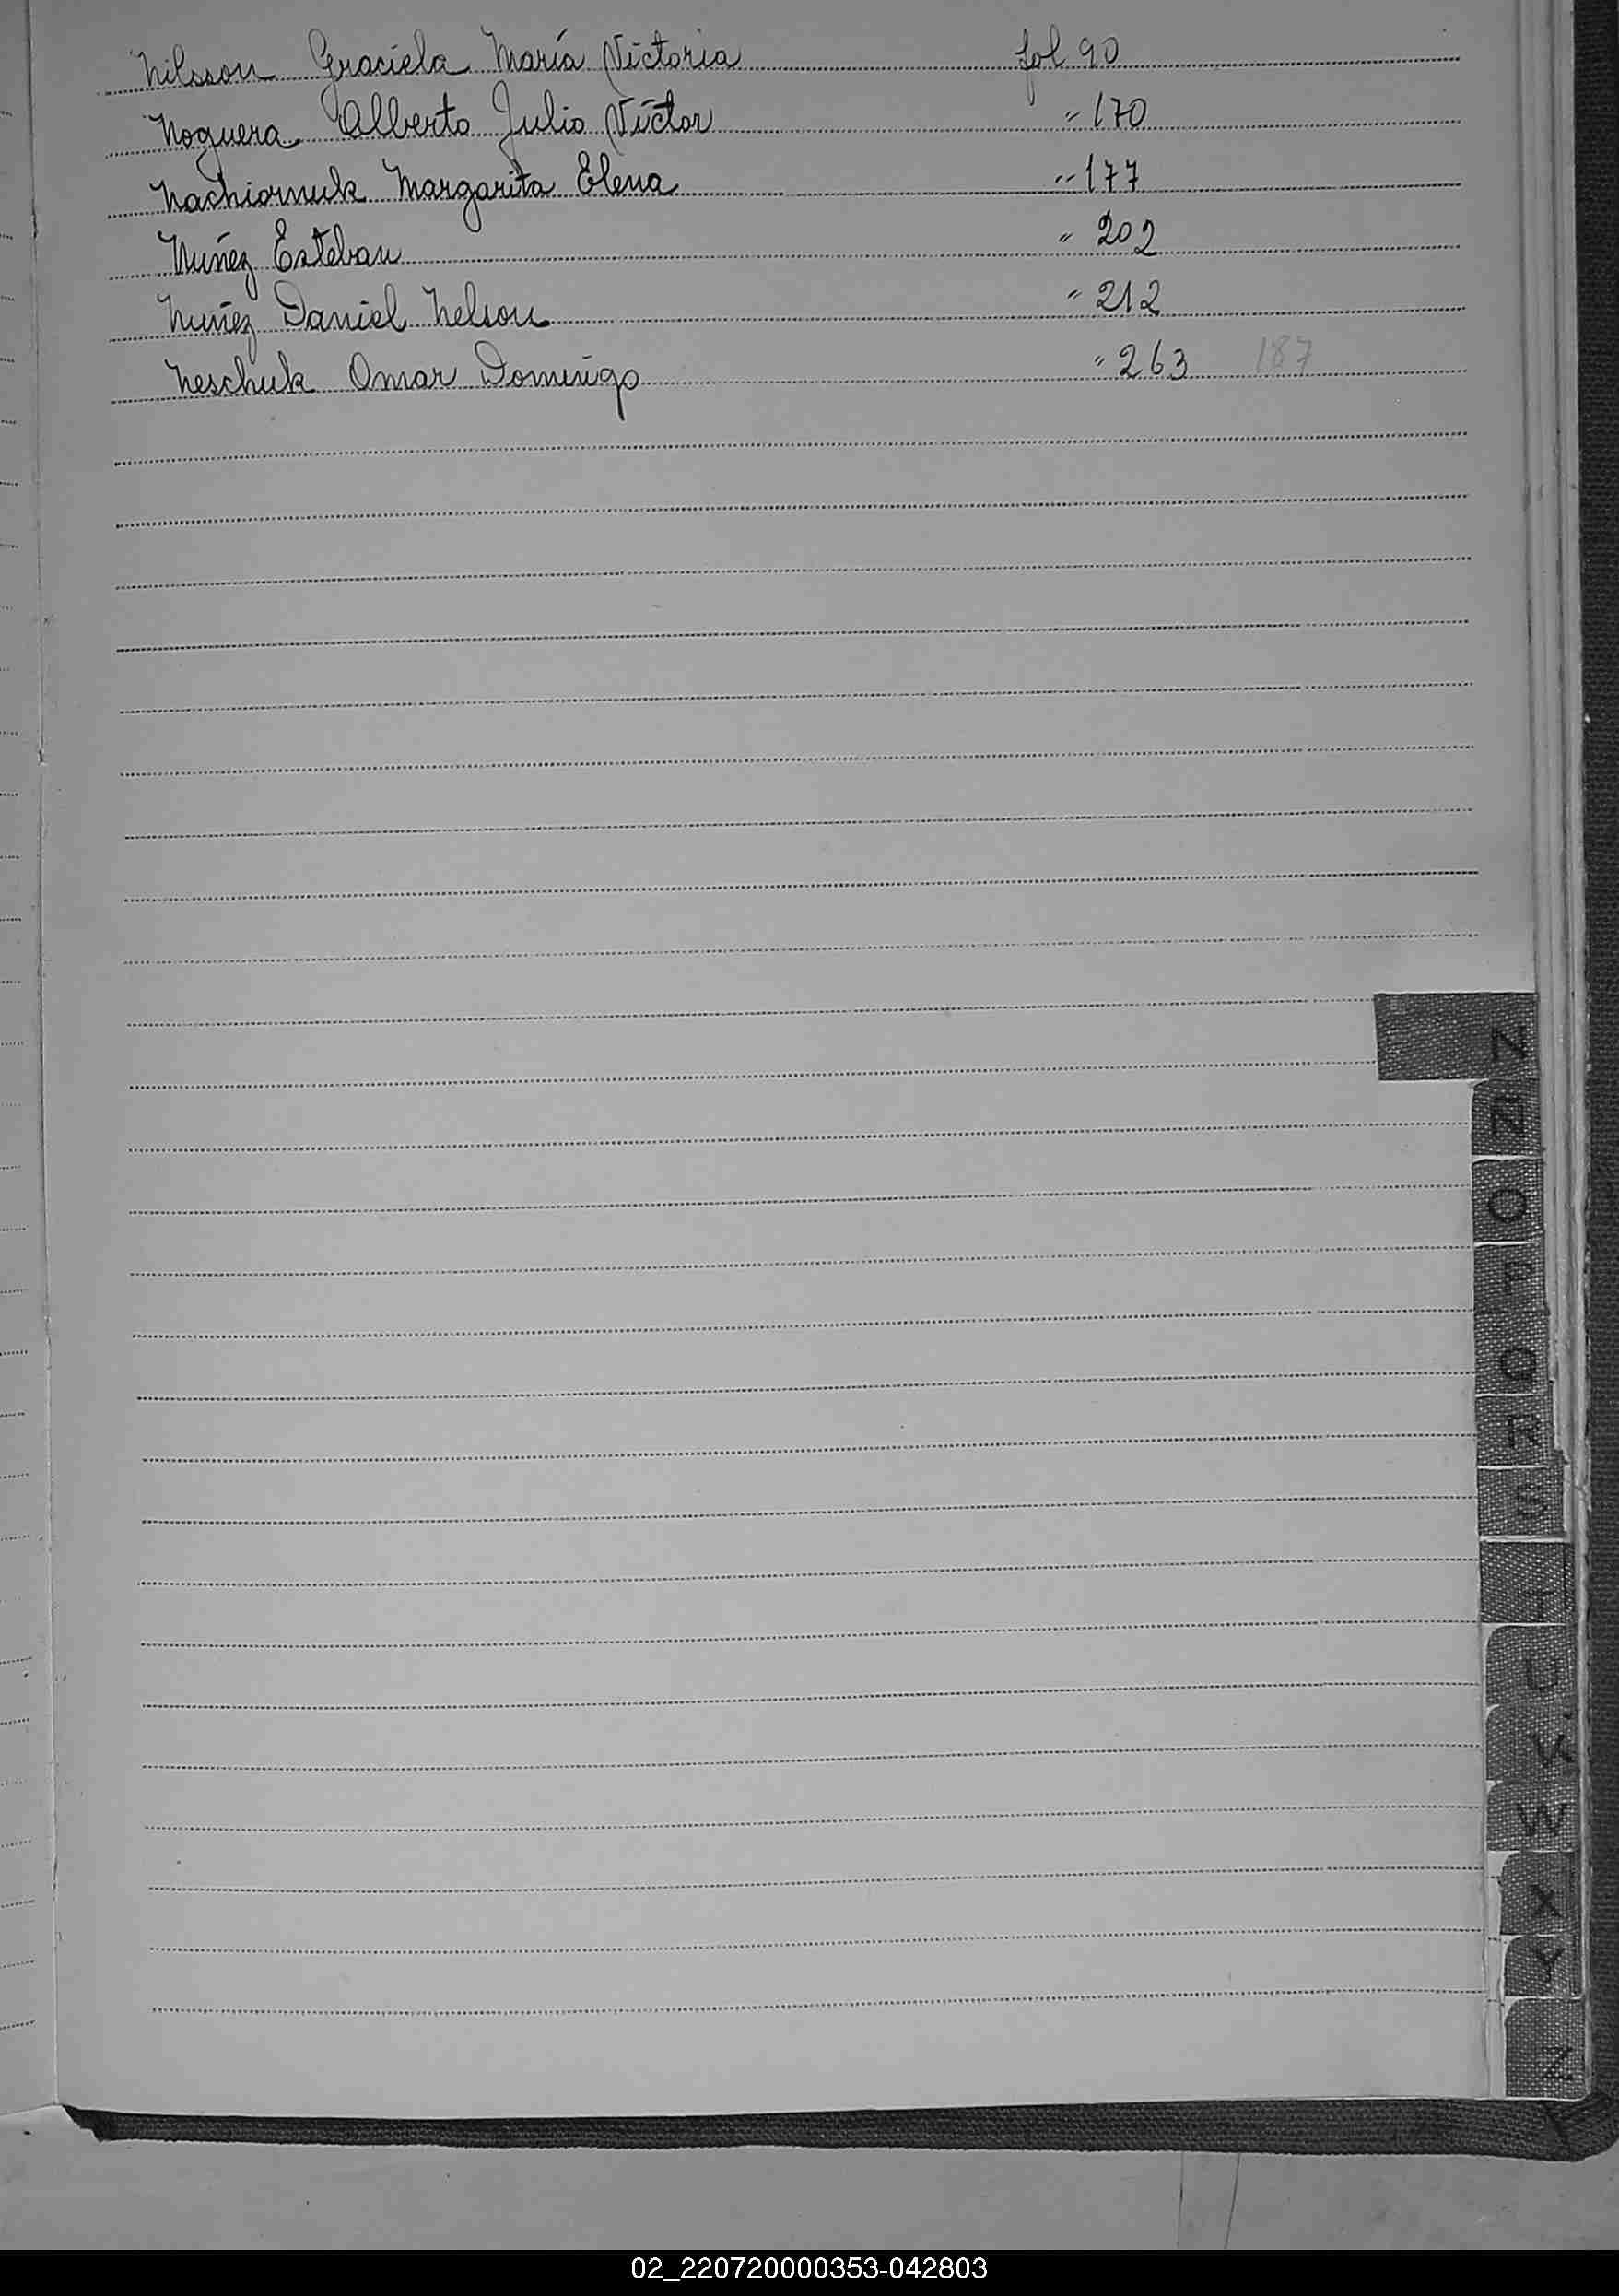 Nilsson Graciela María Victoria fol 90
Noguera Alberto Julio Víctor " 170
Nachiornuk Margarita Elena " 177
Nuñez Esteban " 202
Nuñez Daniel Nelson " 212
Neschuk Omar Domingo " 263 187
N
Ñ
O
P
Q
R
S
T
U
V
W
X
Y
Z
02_220720000353-042803